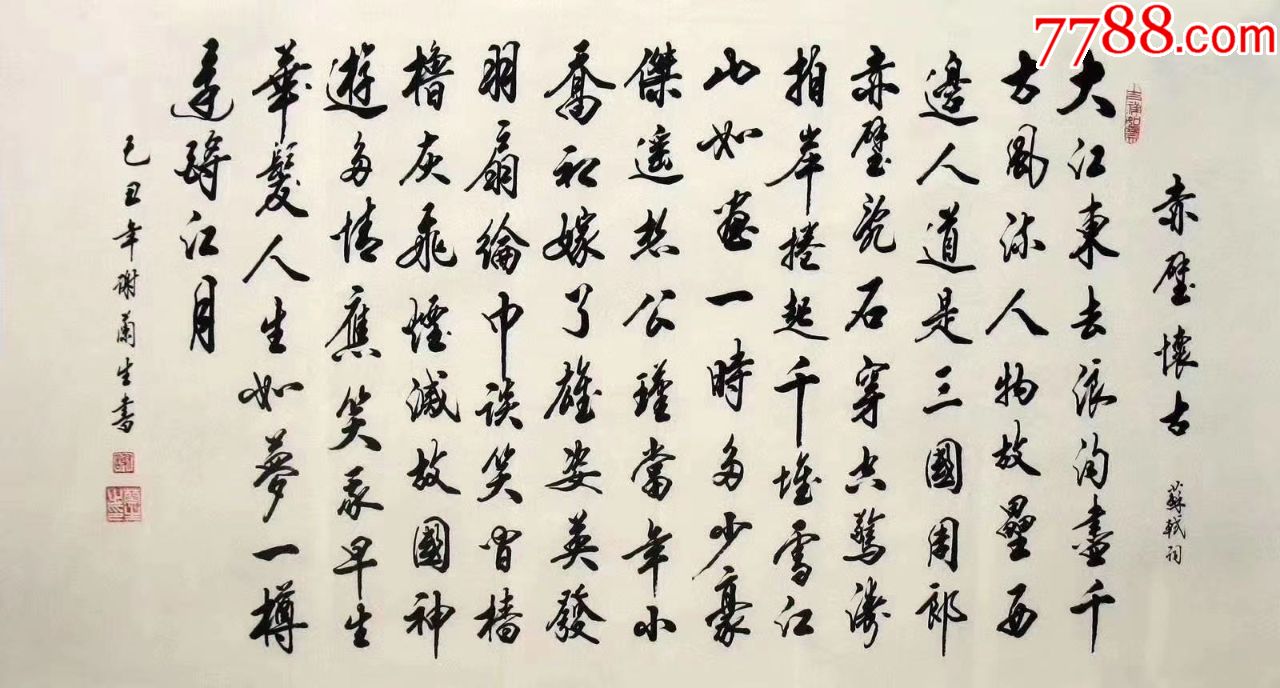 7788.com
赤壁懷古
蘇軾詞
大江東去浪淘盡千
古風流人物故壘西
邊人道是三國周郎
赤壁亂石穿空驚濤
拍岸捲起千堆雪江
山如畫一時多少豪
傑遙想公瑾當年小
喬初嫁了雄姿英發
羽扇綸巾談笑間檣
櫓灰飛煙滅故國神
遊多情應笑我早生
華髮人生如夢一樽
還酹江月
己丑年謝蘭生書